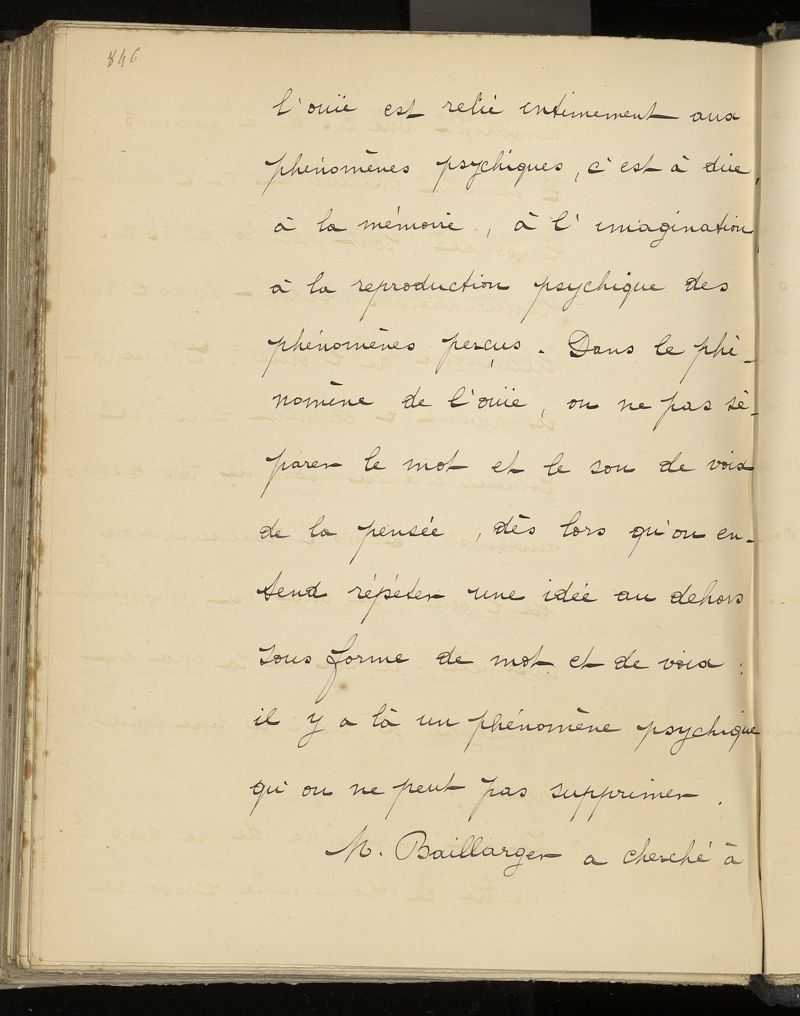 846
l'ouïe est relié intimement aux
phénomènes psychiques, c'est à dire,
à la mémoire, à l'imagination,
à la reproduction psychique des
phénomènes perçus. Dans le phé-
nomène de l'ouïe, on ne pas sé-
parer le mot et le son de voix
de la pensée, dès lors qu'on en-
tend répéter une idée au dehors
sous forme de mot et de voix :
il y a là un phénomène psychique
qu'on ne peut pas supprimer.
M. Baillarger a cherché à